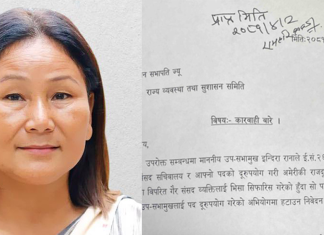 प्राप्त मिति
२०८१/४/२
मिति:२०८१
न सभापति ज्यू
राज्य व्यवस्था तथा सुशासन समिति
विषय:- कारवाही बारे ।
उपरोक्त सम्बन्धमा माननीय उप-सभामुख इन्दिरा रानाले ई.सं.२
सद सचिवालय र आफ्नो पदको दूरुपयोग गरी अमेरिकी राजदू
विपरित गैर संसद व्यक्तिलाई भिसा सिफारिस गरेको हुँदा सो प
उप-सभामुखलाई पद दूरुपयोग गरेको अभियोगमा हटाउन निवेदन